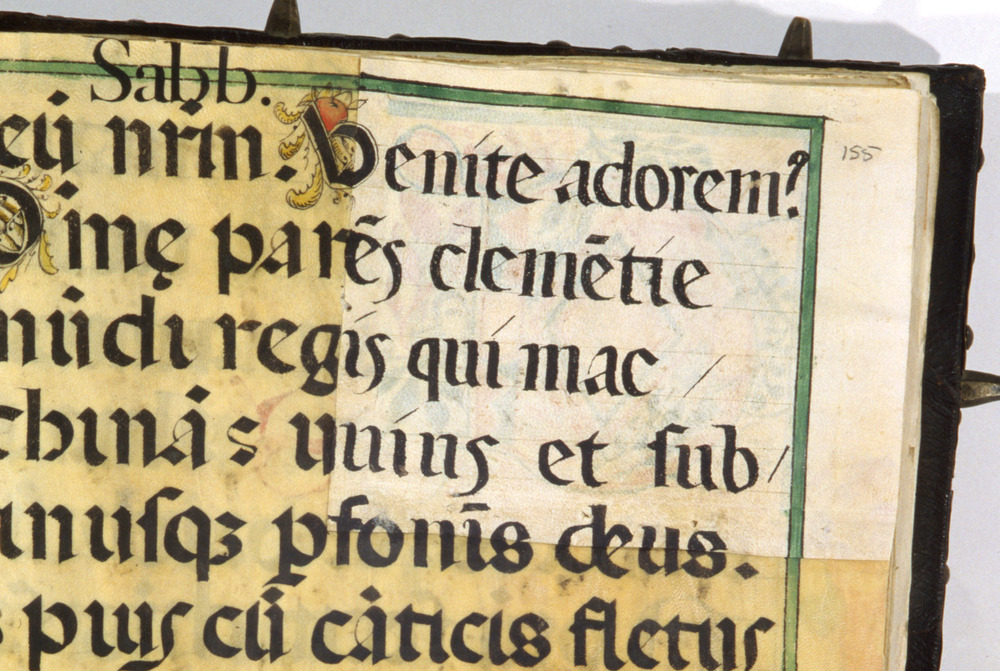 Sabb.
eū nr̄m. Venite adorem?
155
Oimę parēs clemētie
mūdi regis qui mac /
china s unius et sub /
anusqꝫ psonis deus.
s puis cū cāticis fletus